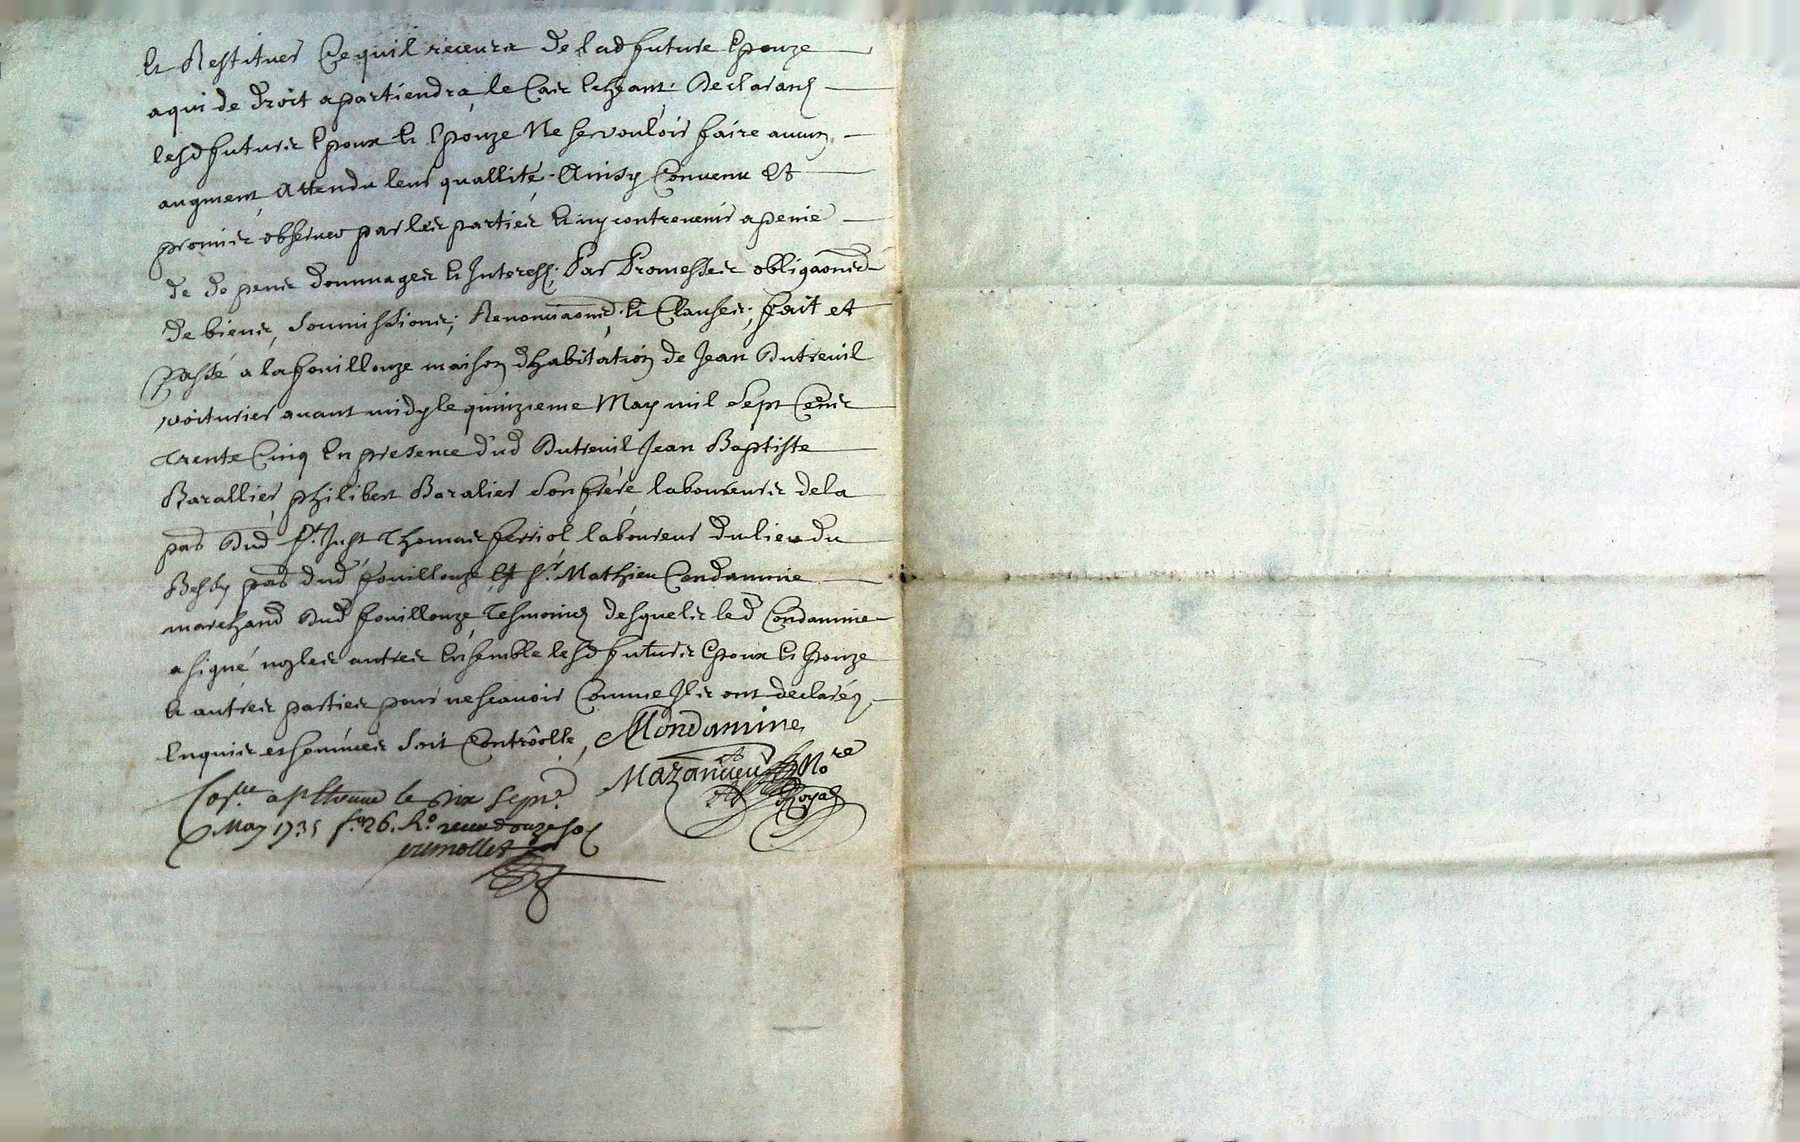 Et Restituer Ce quil recevra de lad future Epouze
a qui de droit apartiendra le Cas Echeant. Declarans
lesd futurs Epoux Et Epouze Ne se vouloir faire aucun
augment Attendu leur quallité. Ainsy Convenu Et
promis observer par les parties Et ny contrevenir a penne
de de penns dommages Et Interests; Par Promesses obligaons
de biens, soumissions; Renonciaons. Et Clauses; fait et
passé a la fouillouze maison dhabitation de Jean Dutreuil
voiturier avant midy le quinzieme May mil Sept Cens
trente Cinq En presence dud Dutreuil Jean Baptiste
Barallier philibert Baralier son frere laboureurs de la
par dud St. Just Thomas ferriol laboureur du lieu du
Bessy par dud fouillouze Et Sr. Mathieu Condamine
marchand dud fouillouze Tesmoins desquels led Condamine
a signé non les autres Ensemble lesd futurs Epoux Et Epouze
Et autres parties pour ne scavoir Comme Ils ont declarés
Enquis et sommes soit Controolle, MCondamine
Mazancieu No.re
Royal
Con.lle a St Etienne le dix sept.e
May 1735 f.o 26. R.o receu douze sols